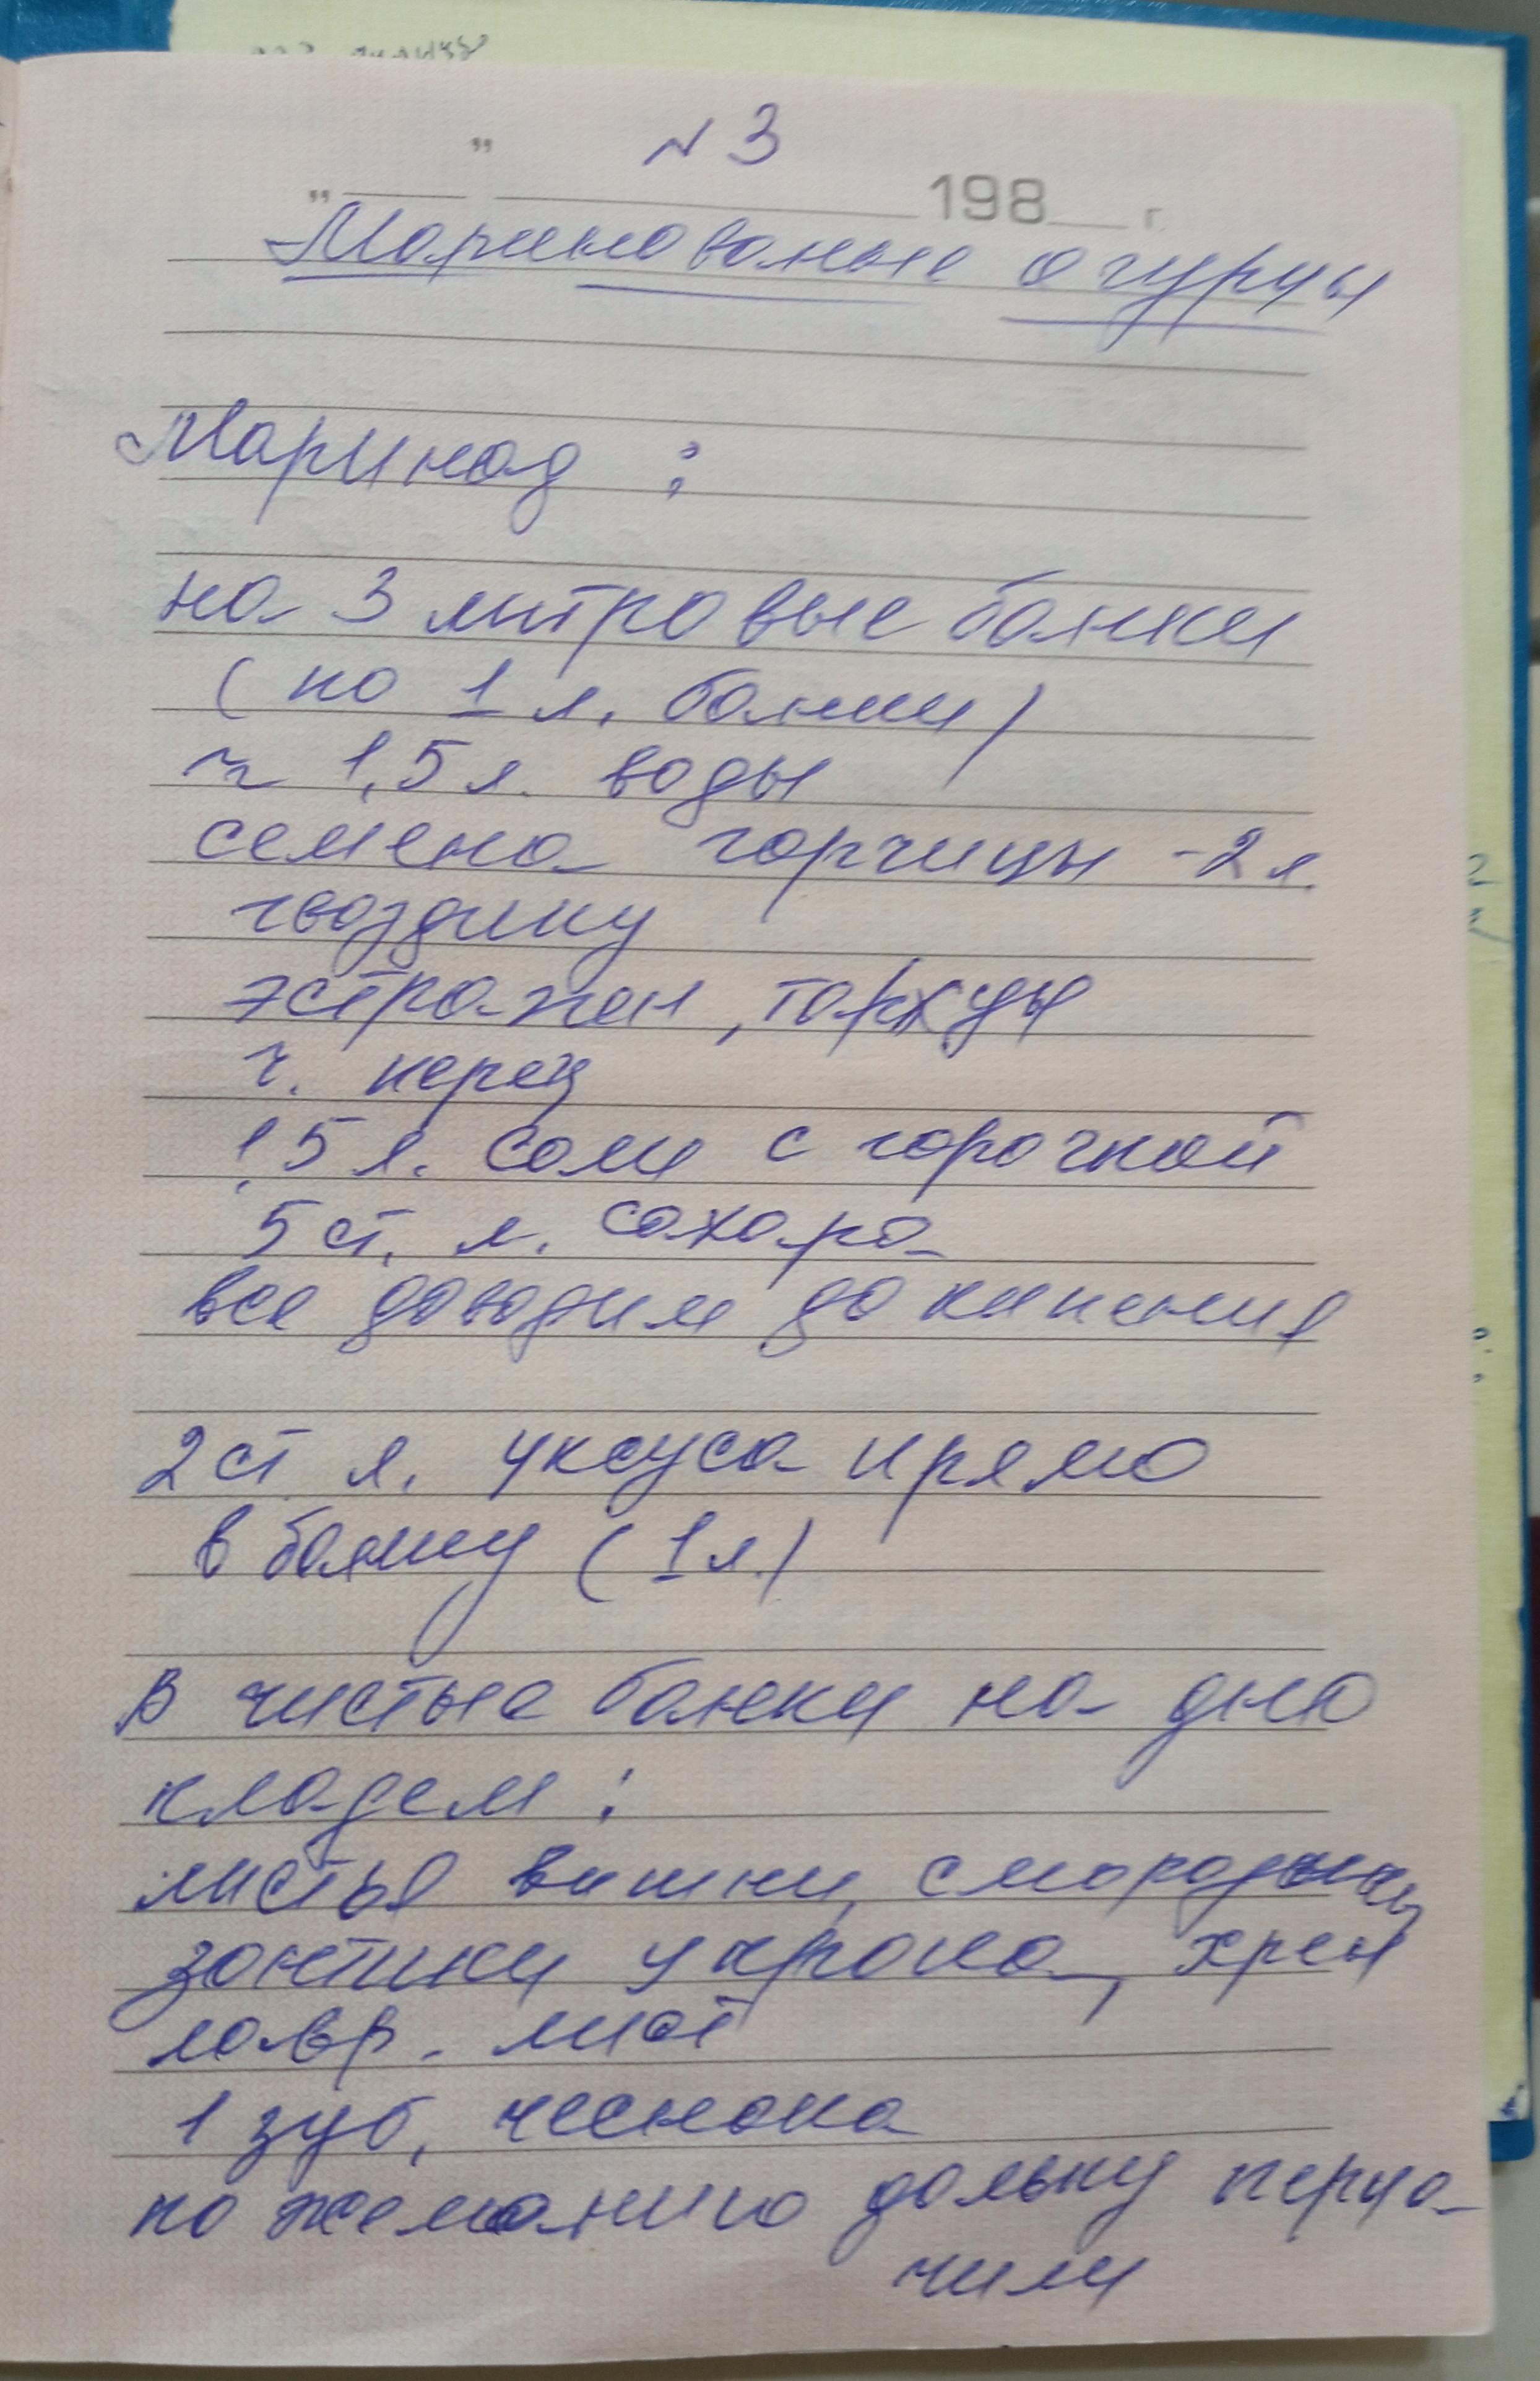 N 3
" " 198 г.
Маринованые огурцы
Маринад :
на 3 литровые банки
(по 1 л. банки)
1,5 л. воды
семена горчицы - 2 л.
гвоздику
эстрагон, тархун
ч. перец
1,5 л. соли с горочкой
5 ст. л. сахара
все доводим до кипения
2 ст л. уксуса прямо
в банку (1 л.)
В чистые банки на дно
кладем :
листья вишни, смородины,
зонтики укропа, хрен
лавр. лист
1 зуб. чеснока
по желанию дольку перца
чили